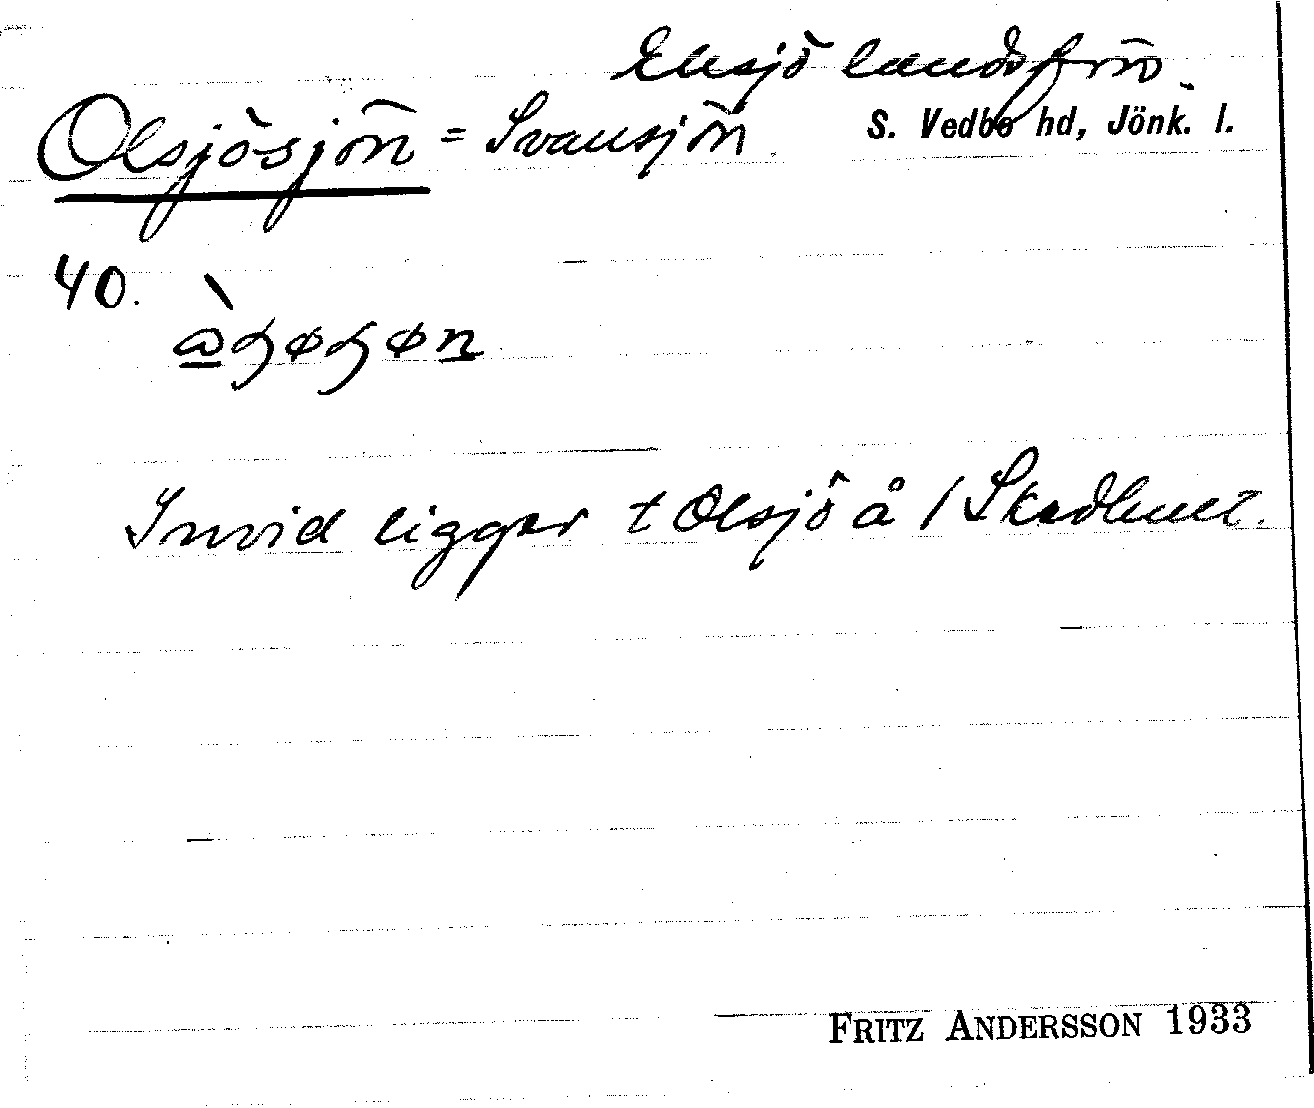 Eksjö landsförs.
Olsjösjön = Svansjön.
S. Vedbo hd, Jönk. l.
40.
Invid ligger t Olsjö å / Skedhult.
FRITZ ANDERSSON 1933